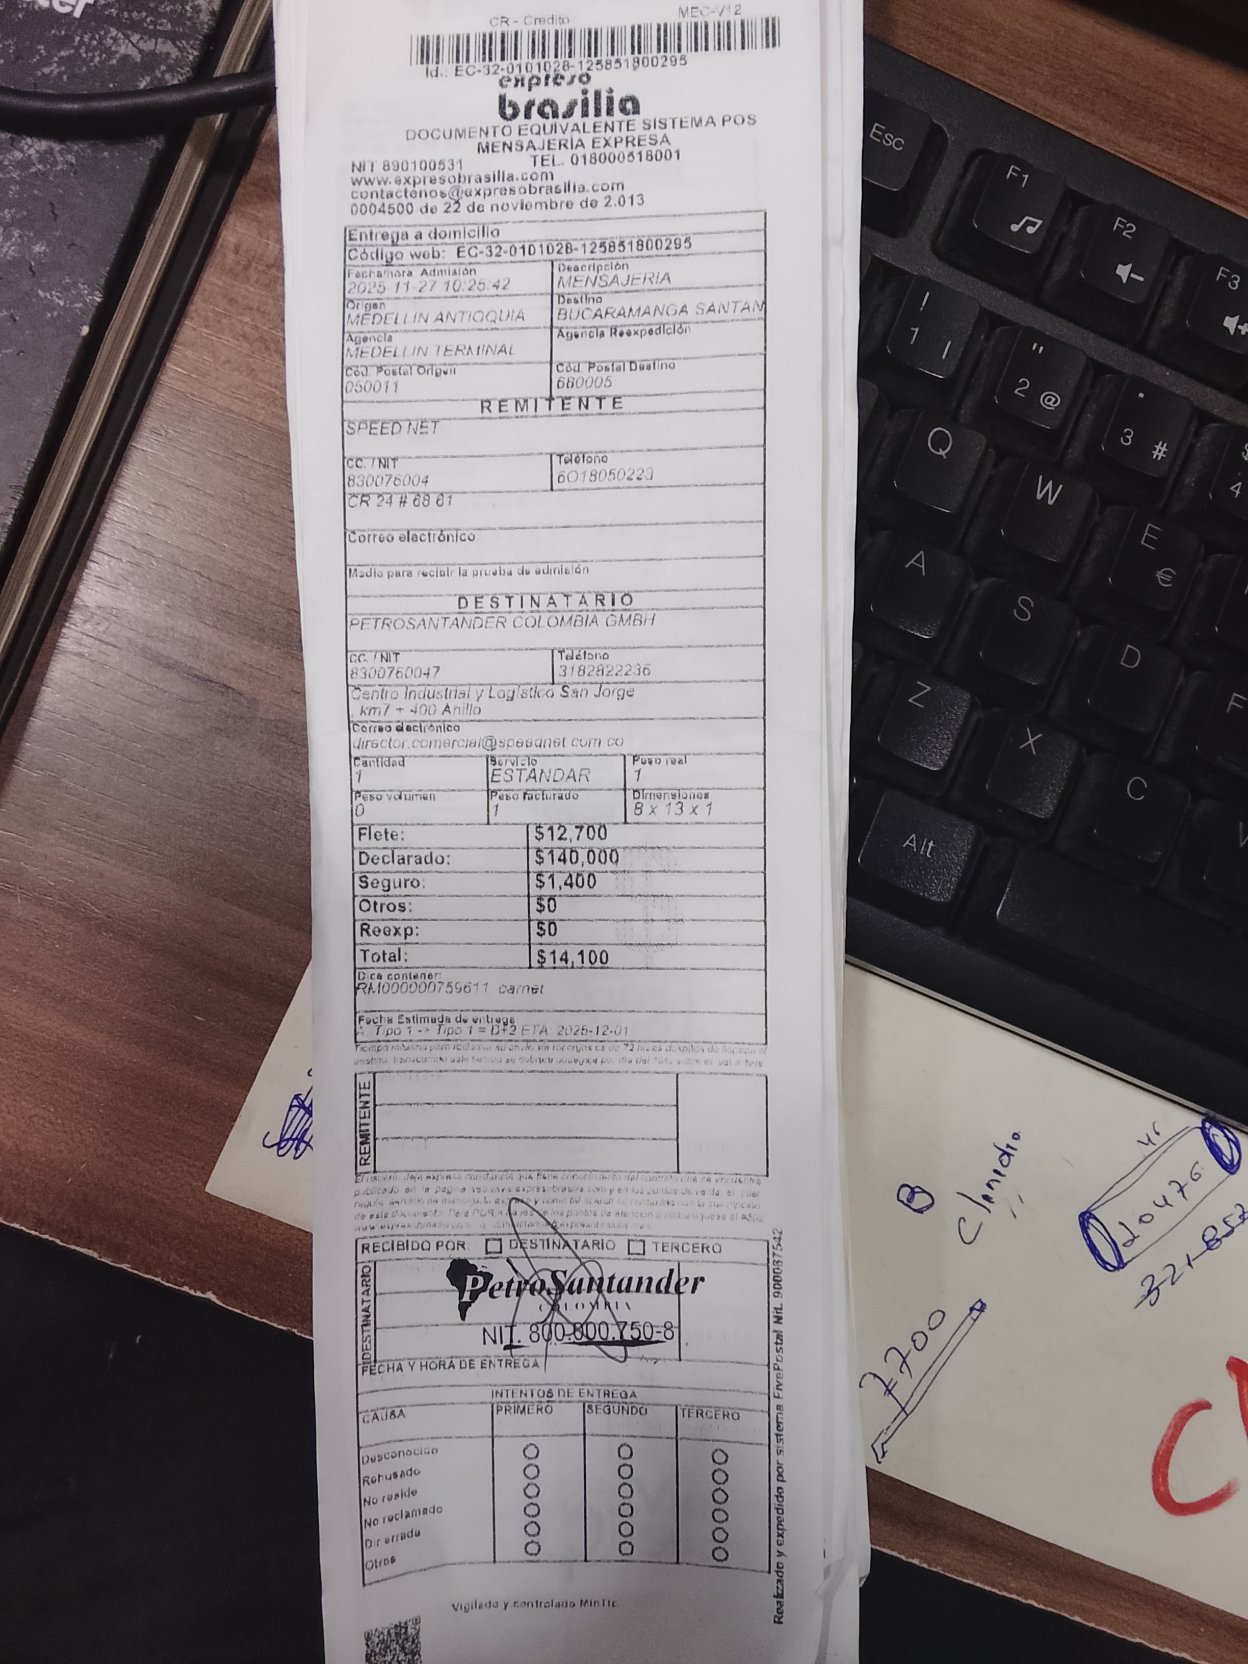 CR - Credito MEC-V12
Id.: EC-32-0101028-125851800295
expreso
brasilia
DOCUMENTO EQUIVALENTE SISTEMA POS
MENSAJERÍA EXPRESA
NIT 890100531 TEL. 018000518001
www.expresobrasilia.com
contactenos@expresobrasilia.com
0004500 de 22 de noviembre de 2.013
Entrega a domicilio
Código web: EC-32-0101028-125851800295
Fecha/hora Admisión Descripción
2025-11-27 10:25:42 MENSAJERIA
Origen Destino
MEDELLIN ANTIOQUIA BUCARAMANGA SANTAN
Agencia Agencia Reexpedición
MEDELLIN TERMINAL
Cód. Postal Origen Cód. Postal Destino
050011 680005
REMITENTE
SPEED NET
CC. / NIT Teléfono
830076004 6018050223
CR 24 # 68 61
Correo electrónico
Medio para recibir la prueba de admisión
DESTINATARIO
PETROSANTANDER COLOMBIA GMBH
CC. / NIT Teléfono
8300760047 3182822236
Centro Industrial y Logístico San Jorge
km7 + 400 Anillo
Correo electrónico
director.comercial@speednet.com.co
Cantidad Servicio Peso real
1 ESTANDAR 1
Peso volumen Peso facturado Dimensiones
0 1 8 x 13 x 1
Flete: $12,700
Declarado: $140,000
Seguro: $1,400
Otros: $0
Reexp: $0
Total: $14,100
Dice contener:
RM000000759611 carnet
Fecha Estimada de entrega
Tipo 1 --> Tipo 1 = D+2 ETA 2025-12-01
REMITENTE
RECIBIDO POR: DESTINATARIO TERCERO
DESTINATARIO
PetroSantander
COLOMBIA
NIT. 800.800.750-8
FECHA Y HORA DE ENTREGA
INTENTOS DE ENTREGA
CAUSA PRIMERO SEGUNDO TERCERO
Desconocido
Rehusado
No reside
No reclamado
Dir errada
Otros
Realizado y expedido por sistema FivePostal Nit. 900087542
Vigilado y controlado MinTic
Esc
F1
F2
F3
! 1
" 2 @
3 #
4
Q
W
E €
A
S
D
F
Z
X
C
Alt
B
20476
321-852
7700